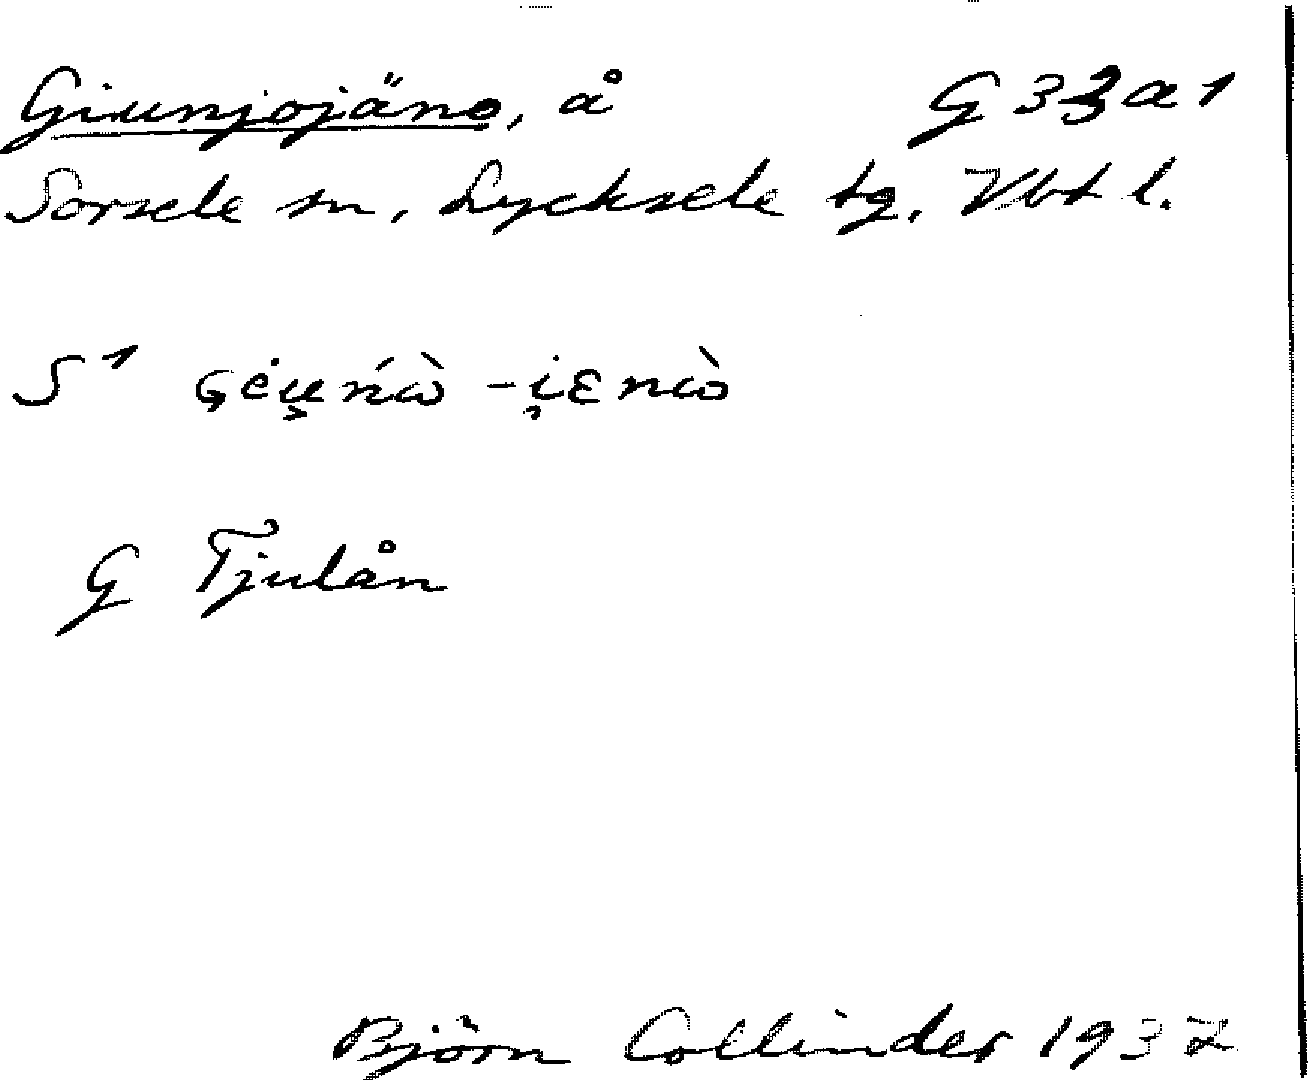 Giunjojäno, å G 33 a 1
Sorsele sn, Lycksele tg, Vbt l.
S 1
G Tjulån
Björn Collinder 1937